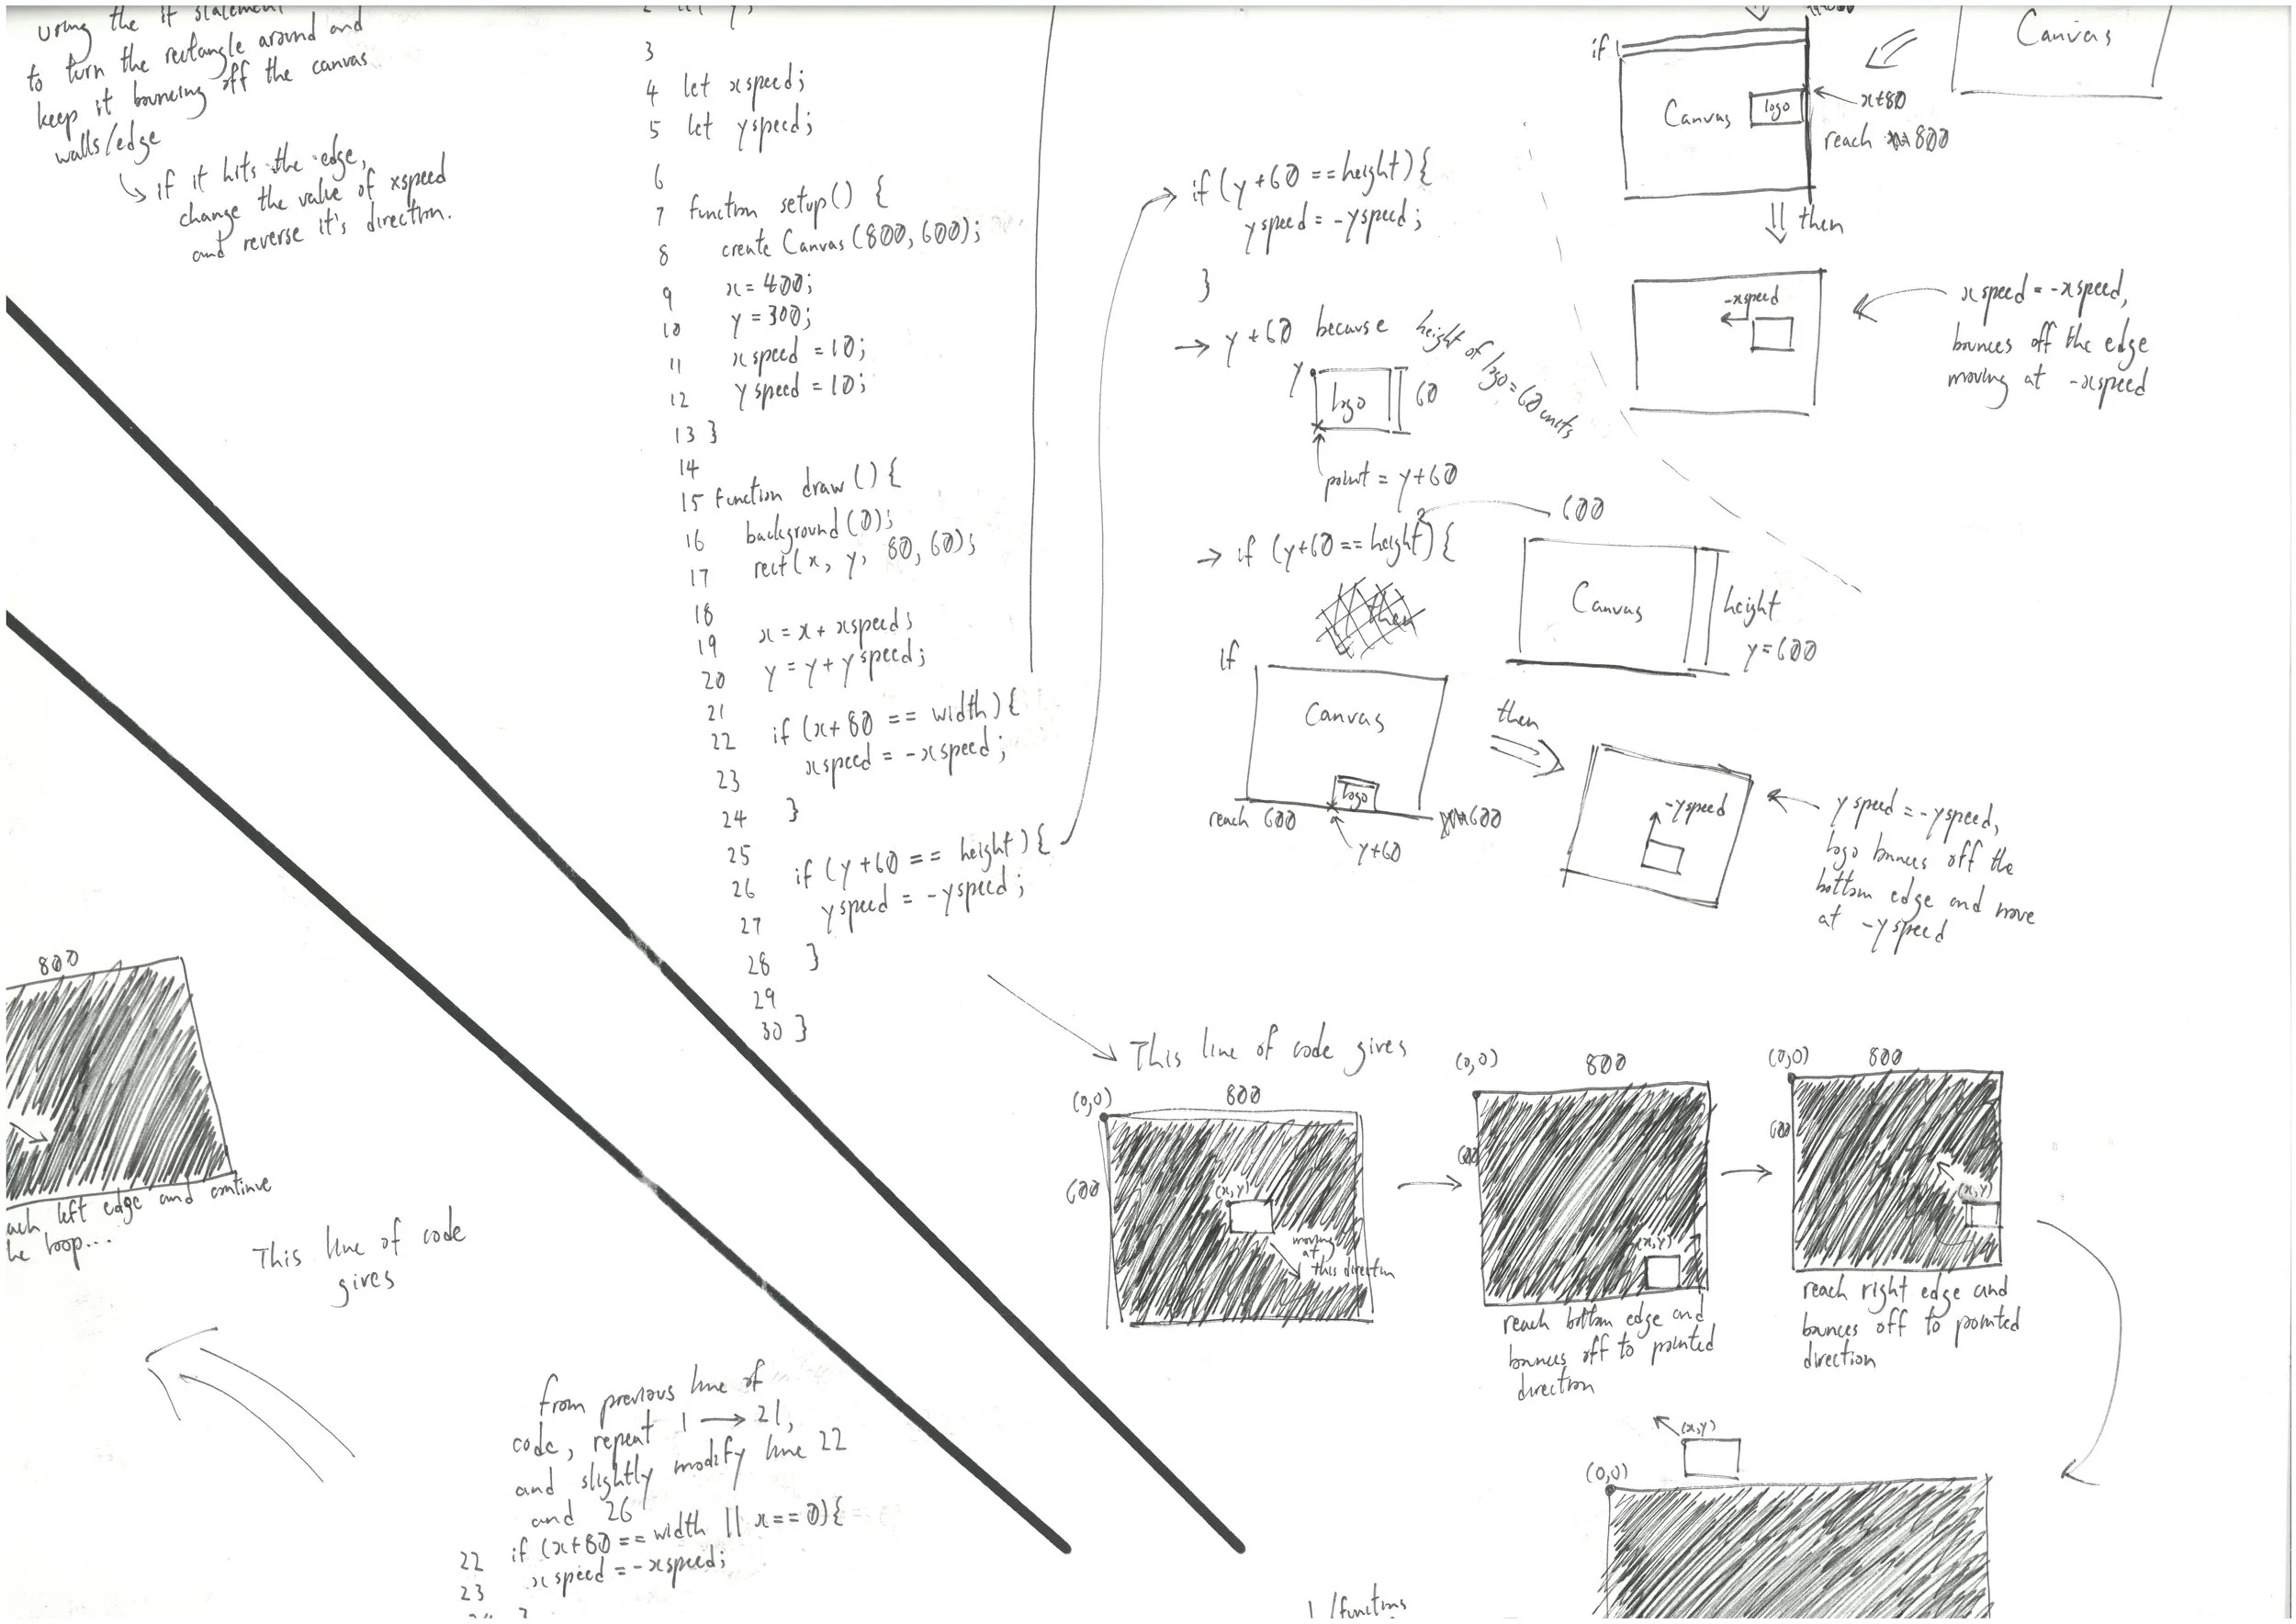 using the if statement
to turn the rectangle around and
keep it bouncing off the canvas
walls/edge
if it hits the edge,
change the value of xspeed
and reverse it's direction.
3
4 let xspeed;
5 let yspeed;
6
7 function setup() {
8 create Canvas (800, 600);
9 x = 400;
10 y = 300;
11 xspeed = 10;
12 yspeed = 10;
13 }
14
15 function draw() {
16 background (0);
17 rect(x, y, 80, 60);
18
19 x = x + xspeed;
20 y = y + yspeed;
21
22 if (x+80 == width) {
23 xspeed = -xspeed;
24 }
25
26 if (y+60 == height) {
27 yspeed = -yspeed;
28 }
29
30 }
if (y+60 == height) {
yspeed = -yspeed;
}
→ y+60 because height of logo = 60 units
y
logo
60
point = y+60
→ if (y+60 == height) {
600
Canvas
height
y=600
if
Canvas
logo
reach 600
600
y+60
then
-yspeed
yspeed = -yspeed,
logo bounces off the
bottom edge and move
at -yspeed
if
Canvas
logo
x+80
reach 800
Canvas
then
-xspeed
xspeed = -xspeed,
bounces off the edge
moving at -xspeed
This line of code gives
(0,0)
800
600
(x,y)
moving
at
this direction
(0,0)
800
600
(x,y)
reach bottom edge and
bounces off to pointed
direction
(0,0)
800
600
(x,y)
reach right edge and
bounces off to pointed
direction
(x,y)
(0,0)
800
left edge and continue
loop...
This line of code
gives
from previous line of
code, repeat 1 → 21,
and slightly modify line 22
and 26
22 if (x+80 == width || x == 0) {
23 xspeed = -xspeed;